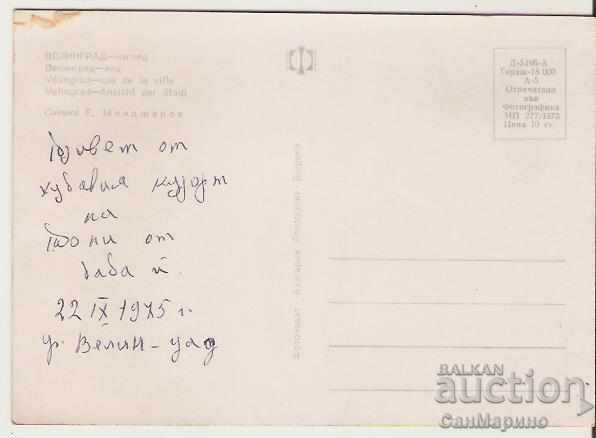 ВЕЛИНГРАД—изглед
Велинград—вид
Velingrad—vue de la ville
Velingrad—Ansicht der Stadt
Снимка Е. Минджиров
Д-5106-А
Тираж 18 000
А-5
Отпечатано
във
Фотографика
МП 277/1973
Цена 10 ст.
Привет от
хубавия курорт
на
Тони от
баба й.
22 IX 1975 г.
гр. Велин-град
BALKAN
auction
СанМарино